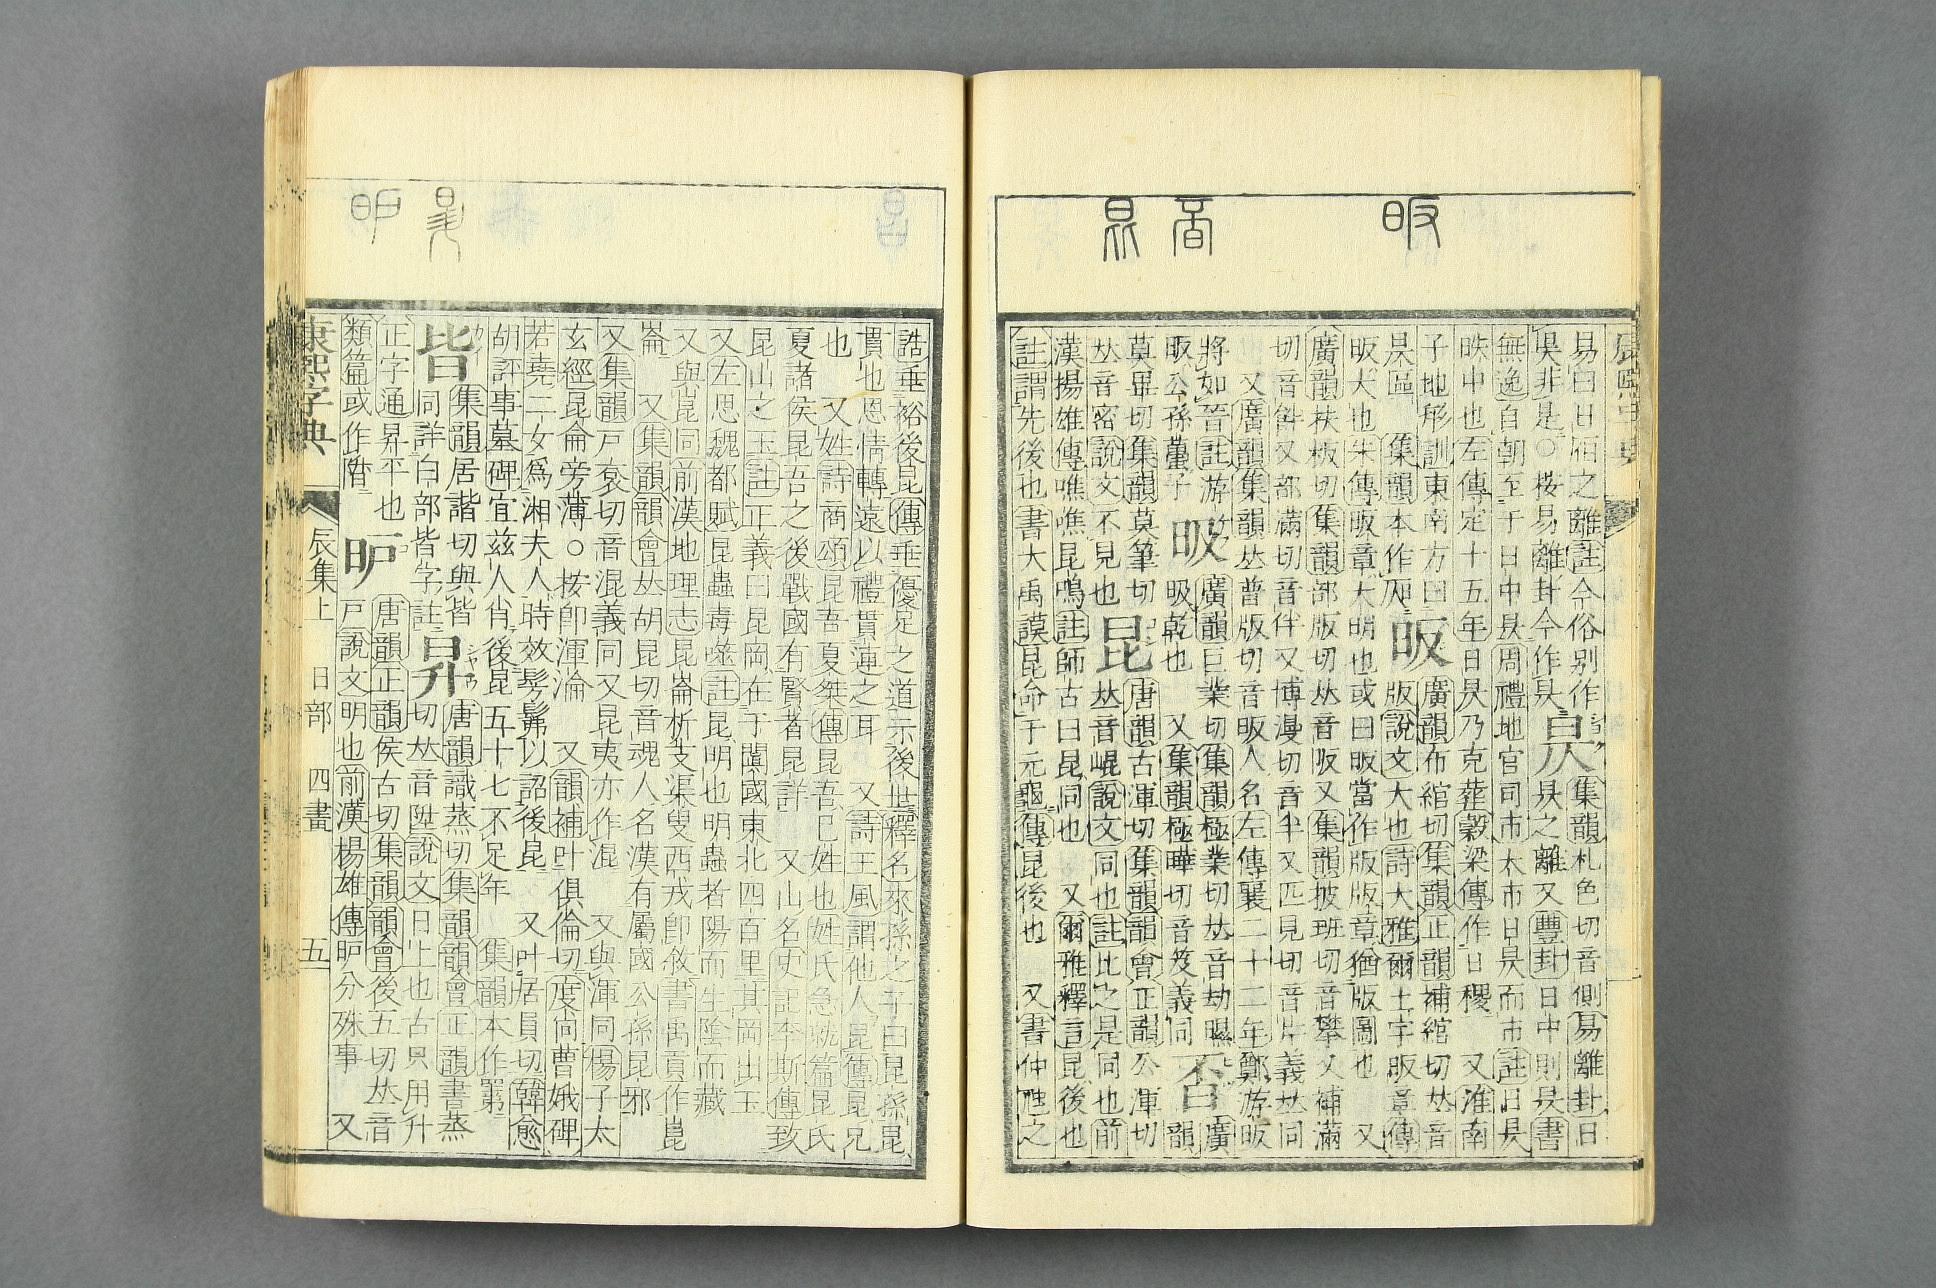 昄
易曰日昃之離註今俗別作昃集韻札色切音側易離卦日
昊非是○按易離卦今作昃 昃之離又豐卦日中則昃書
無逸自朝至于日中昃周禮地官司市大市日昃而市註日昃
昳中也左傳定十五年日昃乃克葬穀梁傳作日稷 又淮南
子地形訓東南方曰 昄 廣韻布綰切集韻正韻補綰切𠀤音
昃區 集韻本作 版說文大也詩大雅爾土宇昄章傳
昄大也朱傳昄章大明也或曰昄當作版版章猶版圖也 又
廣韻扶板切集韻部版切𠀤音阪又集韻披班切音攀又補滿
切音 又部滿切音伴又博漫切音半又匹見切音片義𠀤同
又廣韻集韻𠀤普版切音眅人名左傳襄二十二年鄭游昄
將如晉註游 昅 廣韻巨業切集韻極業切𠀤音劫曝 廣
昄公孫蠆子 昅乾也 又集韻極曄切音笈義同 韻
莫畢切集韻莫筆切 昆 唐韻古渾切集韻韻會正韻公渾切
𠀤音密說文不見也 𠀤音崐說文同也註比之是同也前
漢揚雄傳噍噍昆鳴註師古曰昆同也 又爾雅釋言昆後也
註謂先後也書大禹謨昆命于元龜傳昆後也 又書仲虺之
誥垂裕後昆傳垂優足之道示後世釋名來孫之子曰昆孫昆
貫也恩情轉遠以禮貫連之耳 又詩王風謂他人昆傳昆兄
也 又姓詩商頌昆吾夏桀傳昆吾己姓也姓氏急就篇昆氏
夏諸侯昆吾之後戰國有賢者昆詳 又山名史記李斯傳致
昆山之玉註正義曰昆岡在于闐國東北四百里其岡出玉
又左思魏都賦昆蟲毒噬註昆明也明蟲者陽而生陰而藏
又與崑同前漢地理志昆崙析支渠叟西戎卽敘書禹貢作崑
崙 又集韻韻會𠀤胡昆切音魂人名漢有屬國公孫昆邪
又集韻戸袞切音混義同又昆夷亦作混 又與渾同楊子太
玄經昆侖旁薄○按卽渾淪 又韻補叶俱倫切度尚曹娥碑
若堯二女爲湘夫人時效髣髴以詔後昆 又叶居員切韓愈
胡評事墓碑宜茲人肖後昆五十七不足年 集韻本作
㫮 カイ 集韻居諧切與皆 昇 シヤウ 唐韻識蒸切集韻韻會正韻書蒸
同詳白部皆字註 切𠀤音陞說文日上也古只用升
正字通昇平也 昈 唐韻正韻侯古切集韻韻會後五切𠀤音
類篇或作 戸說文明也前漢楊雄傳昈分殊事 又
康熙字典 辰集上 日部 四畫 五